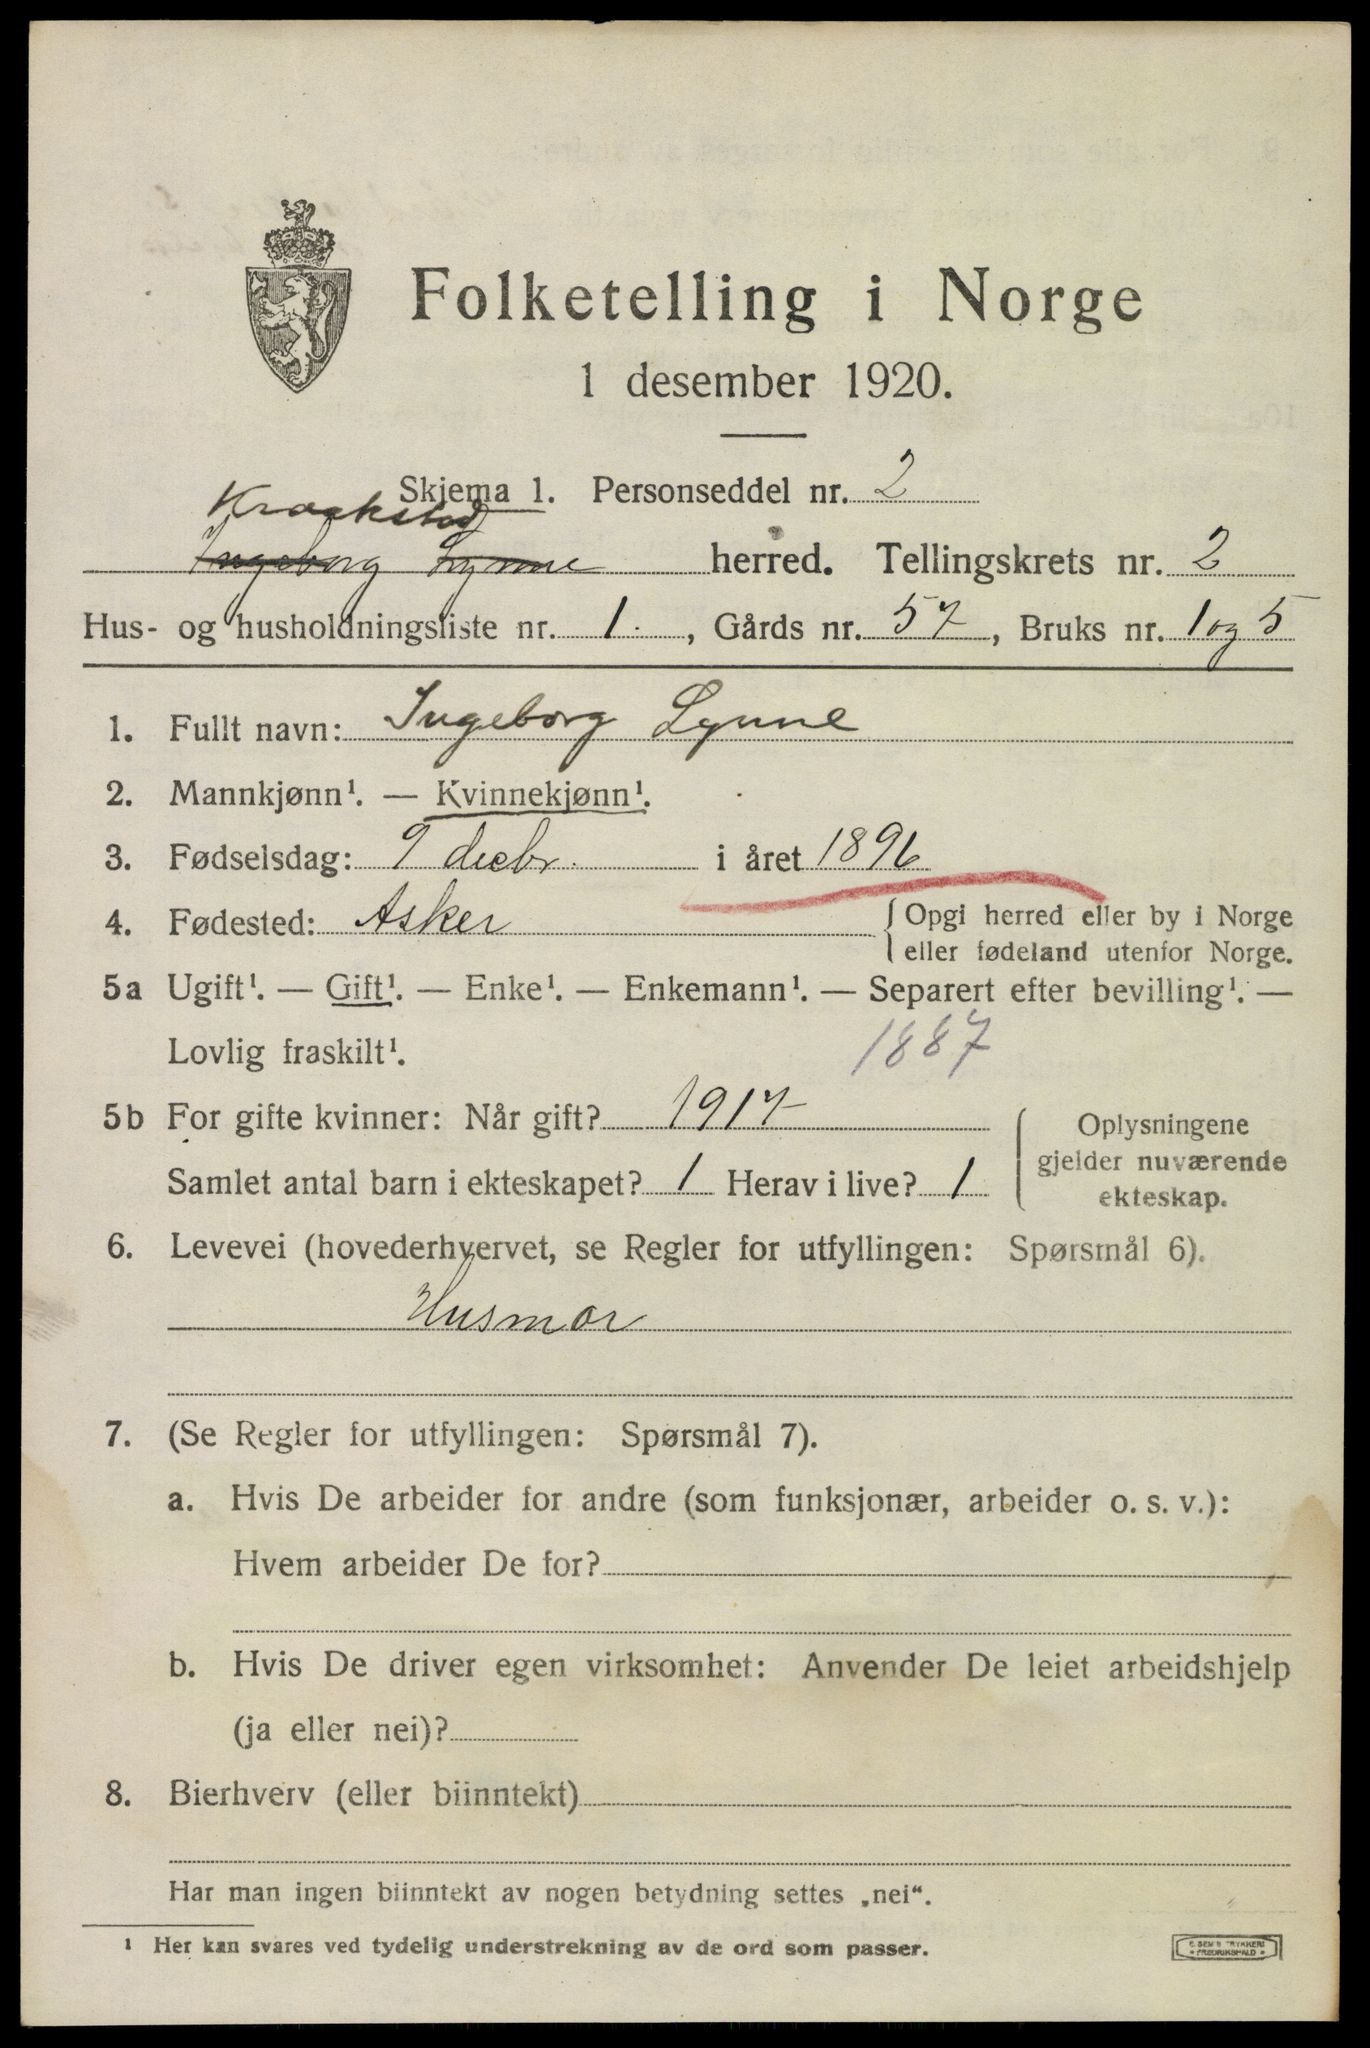 Folketelling i Norge
1 desember 1920.
Skjema 1. Personseddel nr. 2
Kraakstad
Ingeborg Lynne herred. Tellingskrets nr. 2
Hus- og husholdningsliste nr. 1. , Gårds nr. 57 , Bruks nr. 1 og 5
1. Fullt navn: Ingeborg Lynne
2. Mannkjønn¹. — Kvinnekjønn¹.
3. Fødselsdag: 9 decbr. i året 1896
4. Fødested: Asker { Opgi herred eller by i Norge
eller fødeland utenfor Norge.
5a Ugift¹. — Gift¹. — Enke¹. — Enkemann¹. — Separert efter bevilling¹. —
Lovlig fraskilt¹. 1887
5b For gifte kvinner: Når gift? 1917
Samlet antal barn i ekteskapet? 1 Herav i live? 1
Oplysningene
gjelder nuværende
ekteskap.
6. Levevei (hovederhvervet, se Regler for utfyllingen: Spørsmål 6).
Husmor
7. (Se Regler for utfyllingen: Spørsmål 7).
a. Hvis De arbeider for andre (som funksjonær, arbeider o. s. v.):
Hvem arbeider De for?
b. Hvis De driver egen virksomhet: Anvender De leiet arbeidshjelp
(ja eller nei)?
8. Bierhverv (eller biinntekt)
Har man ingen biinntekt av nogen betydning settes „nei“.
¹ Her kan svares ved tydelig understrekning av de ord som passer.